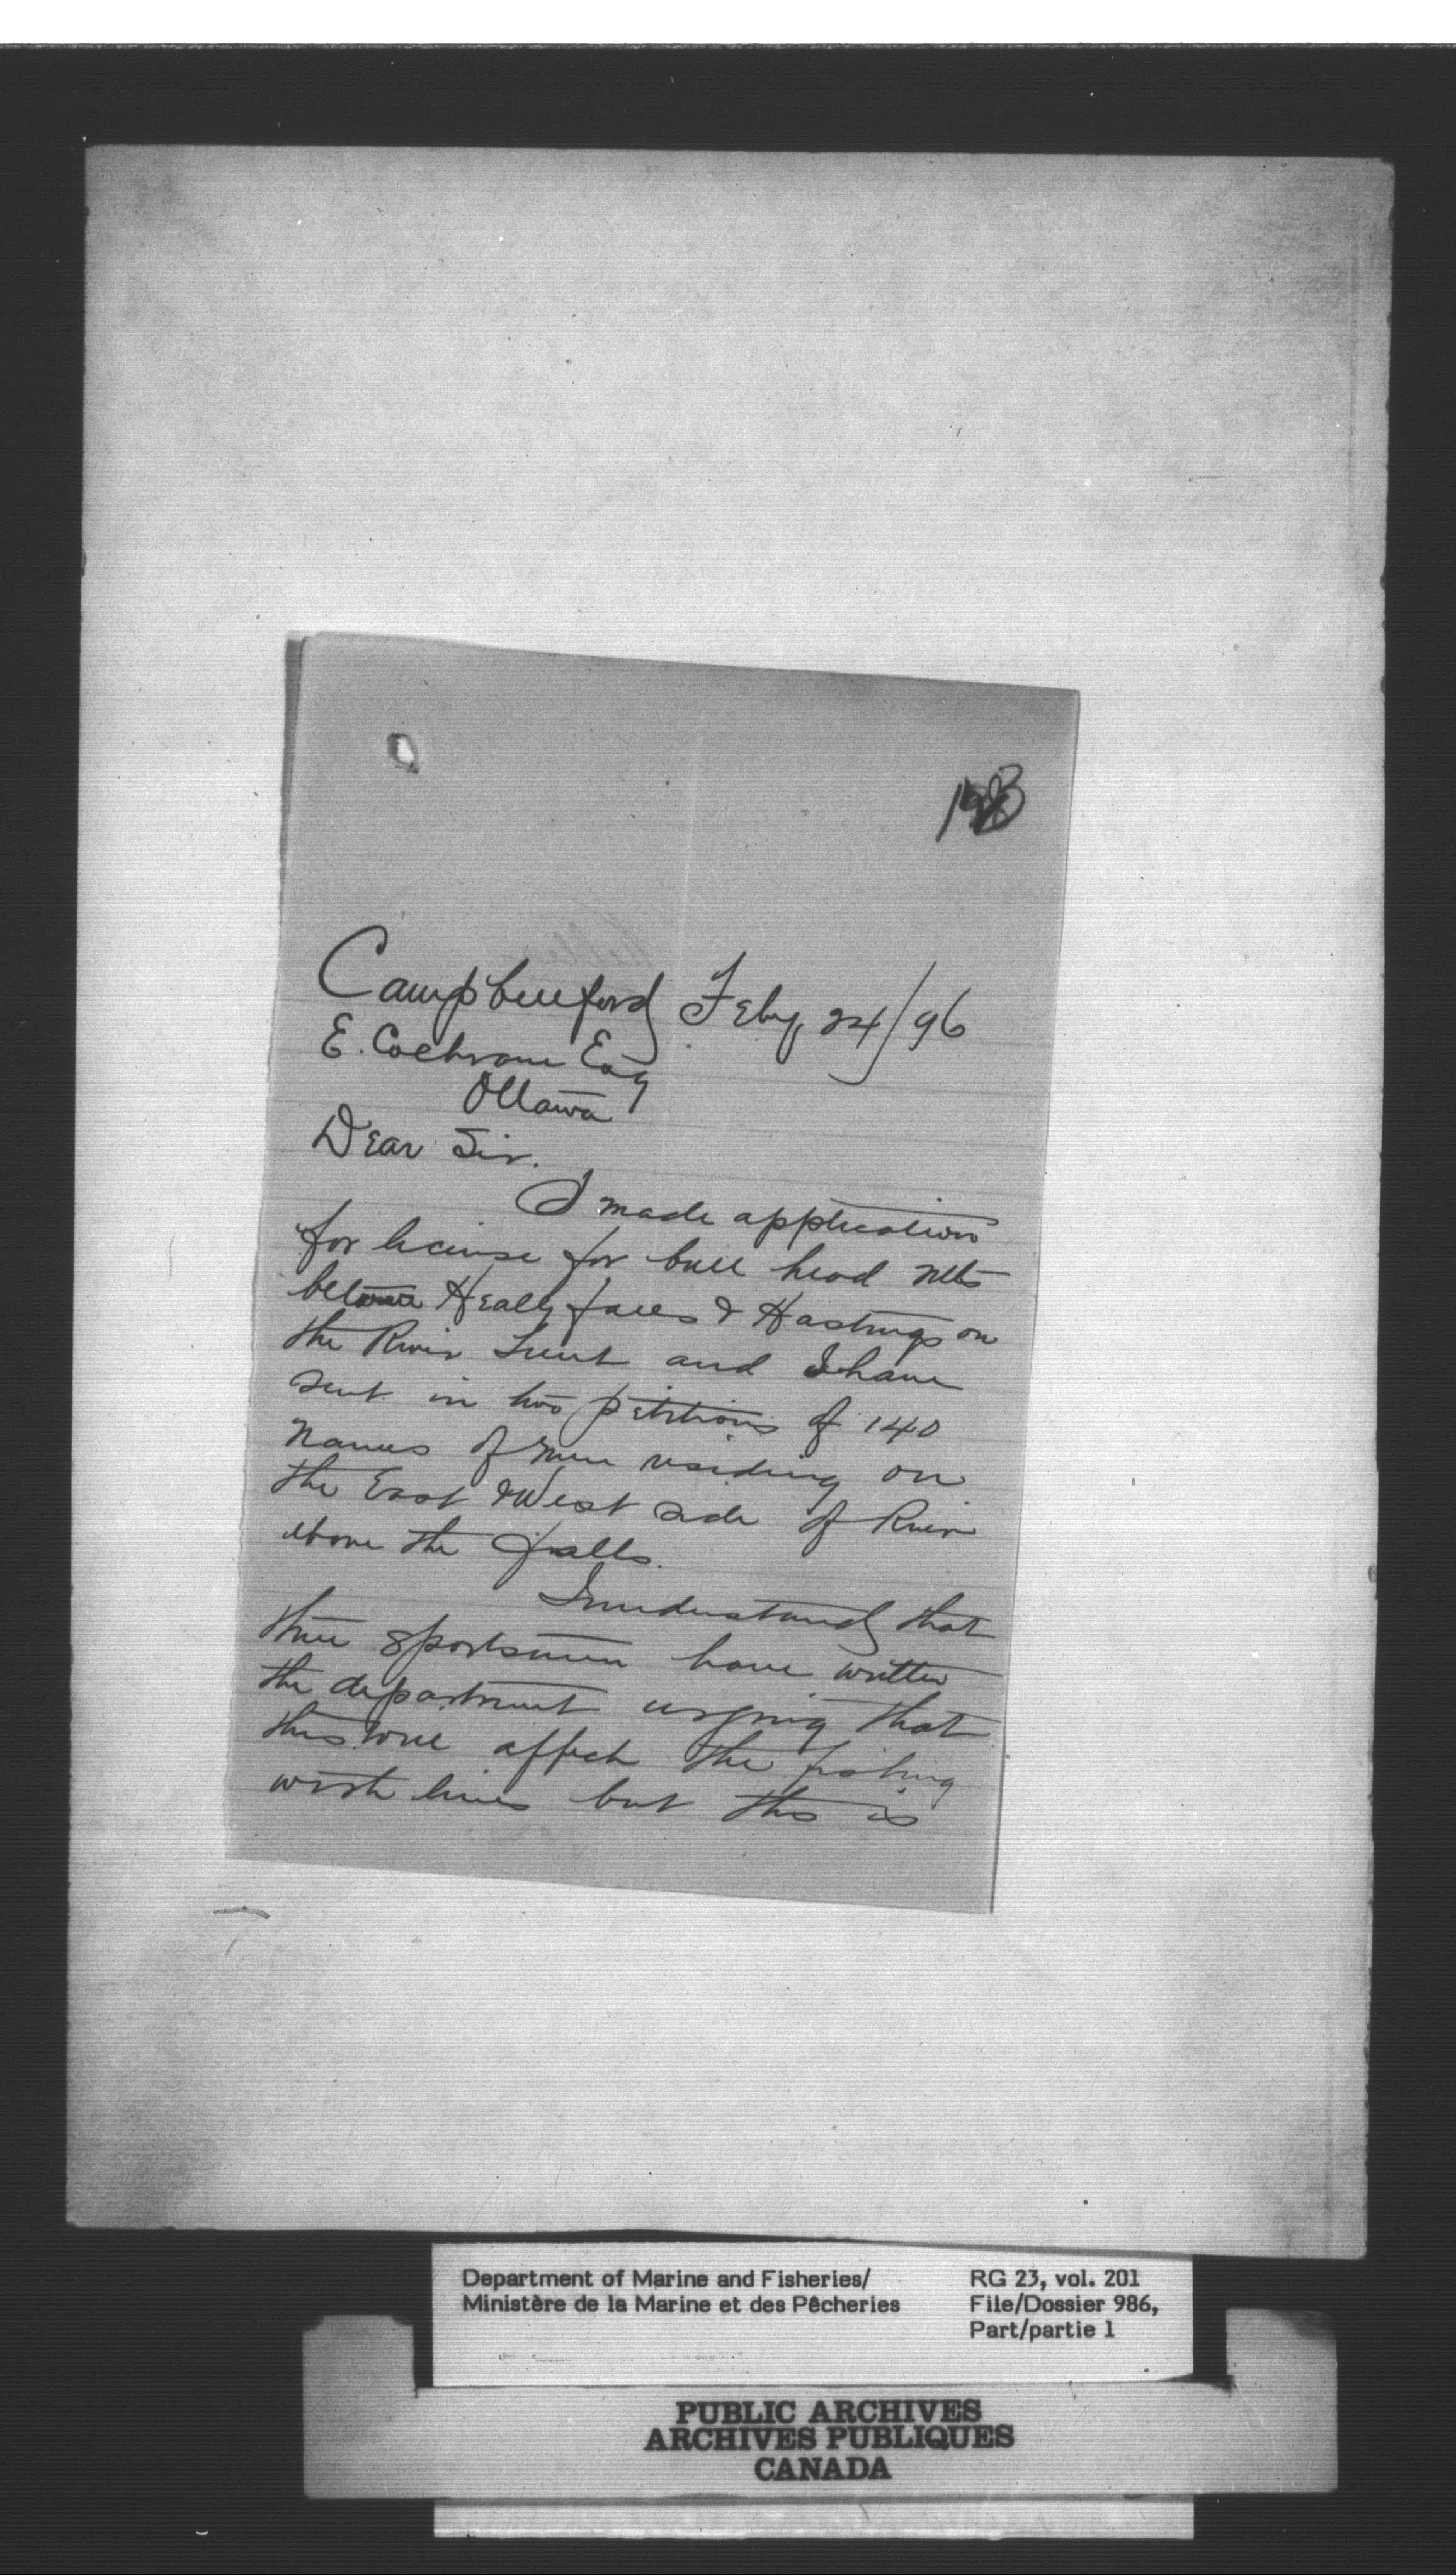 Campbellford Feby 24/96
E. Cochrane Esq
Ottawa
Dear Sir.
I made application
for license for bull head nets
between Healy falls & Hastings on
the River Trent and I have
sent in two petitions of 140
names of men residing on
the East & West side of River
above the falls.
I understand that
three sportsmen have written
the department urging that
this will affect the fishing
with lines but this is
Department of Marine and Fisheries/
Ministère de la Marine et des Pêcheries
RG 23, vol. 201
File/Dossier 986,
Part/partie 1
PUBLIC ARCHIVES
ARCHIVES PUBLIQUES
CANADA